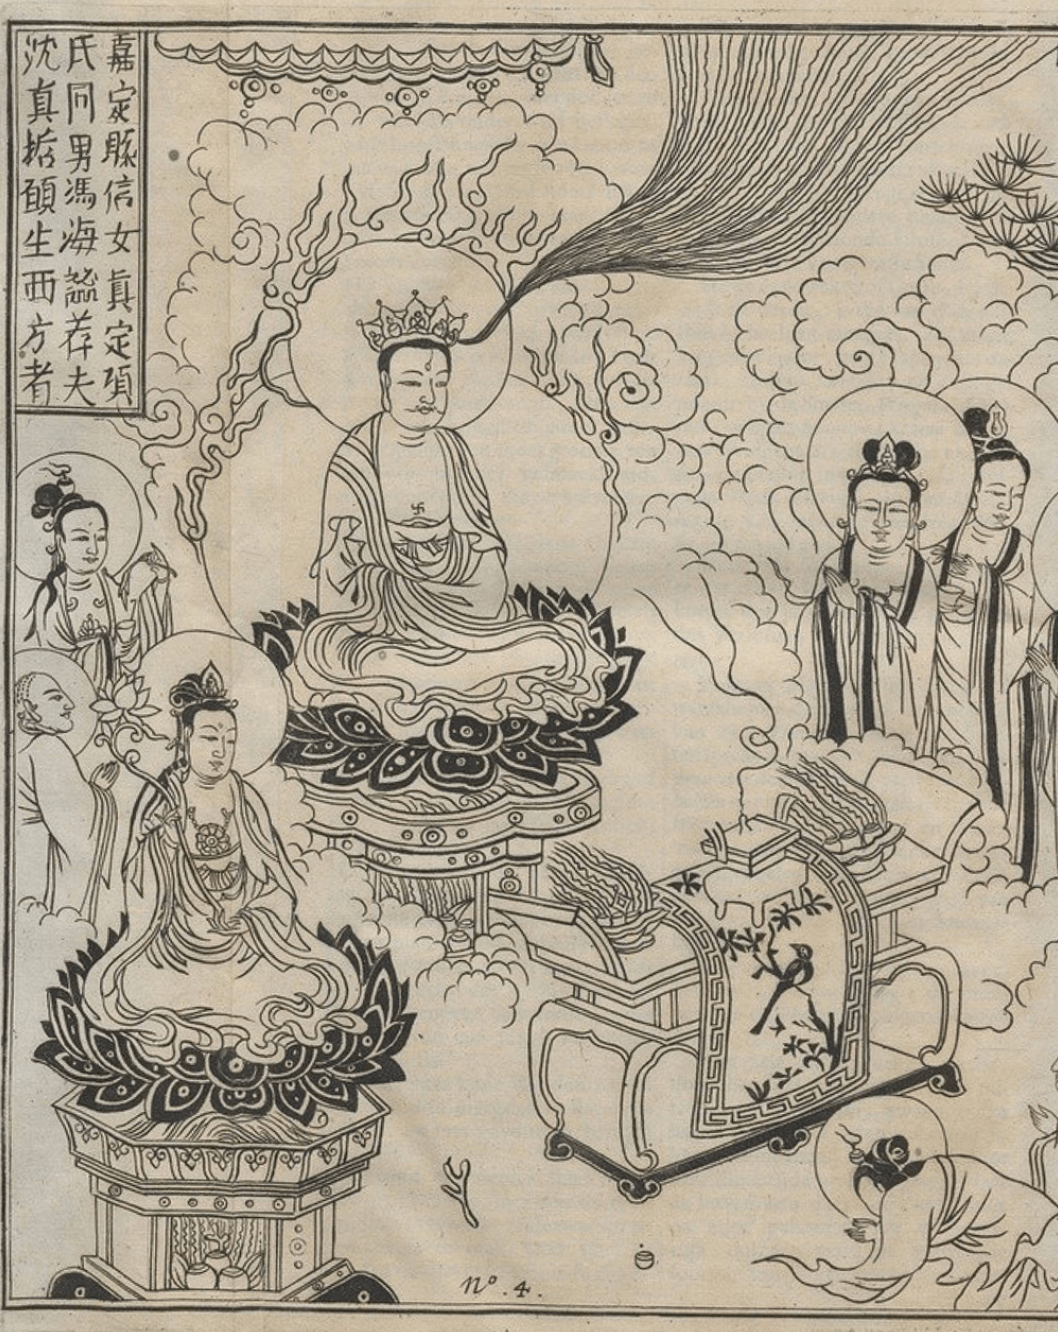 嘉定縣信女眞定項
氏同男馮海荐夫
沈真願生西方者
Nº. 4.